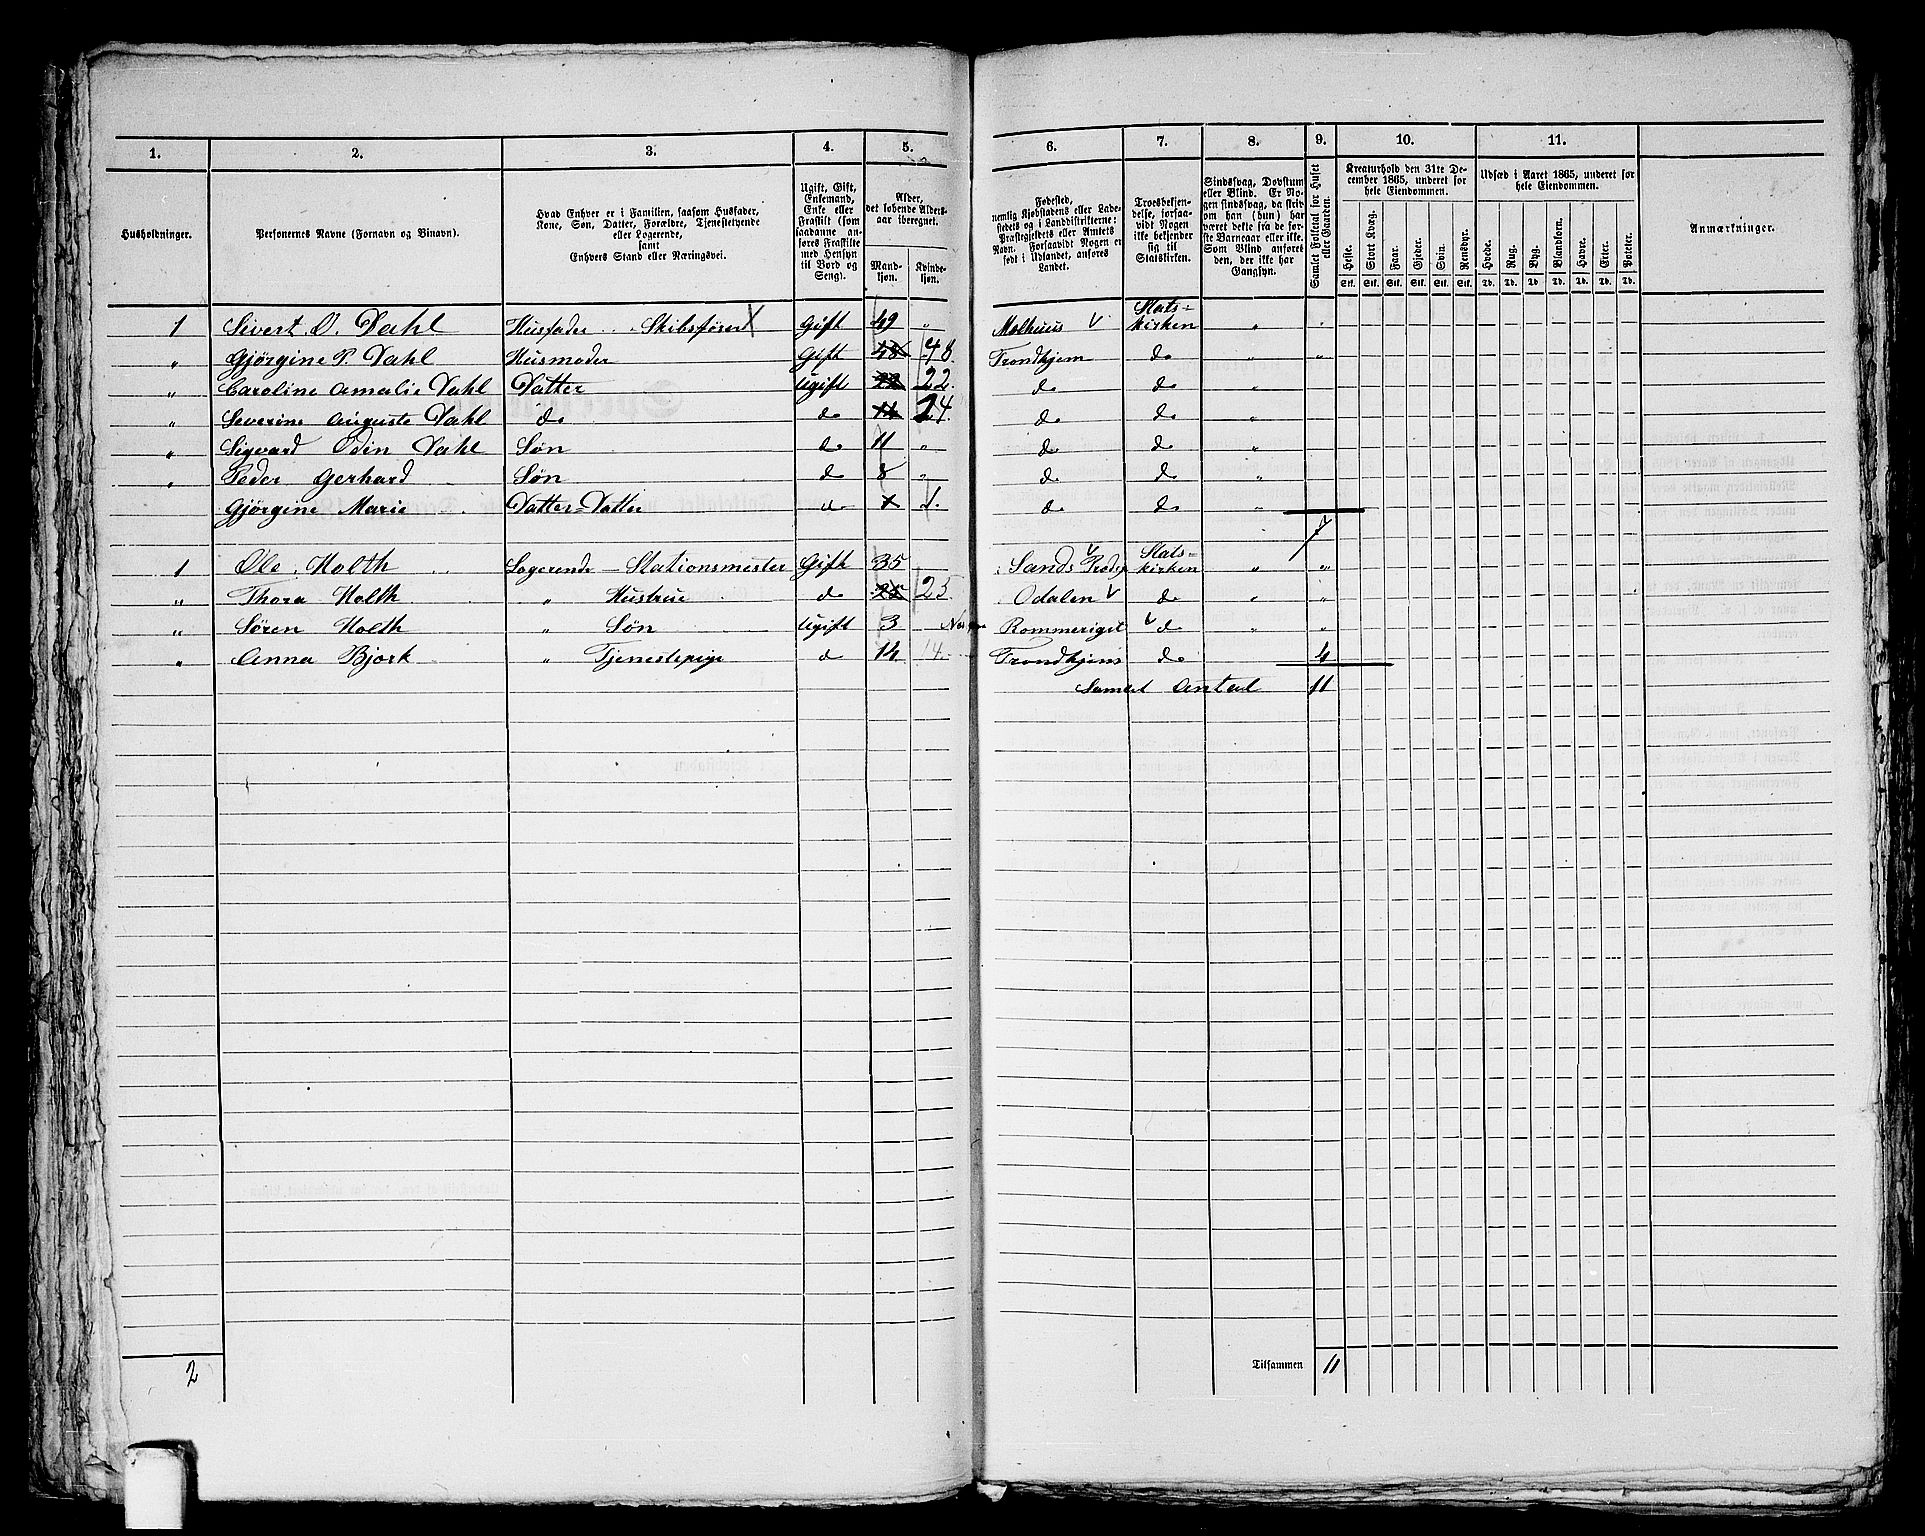 1. 2. 3. 4. 5. 6. 7. 8. 9. 10. 11.
Husholdninger.
Personernes Navne (Fornavn og Binavn).
Hvad Enhver er i Familien, saasom Husfader,
Kone, Søn, Datter, Forældre, Tjenestetyende
eller Logerende,
samt
Enhvers Stand eller Næringsvei.
Ugift, Gift,
Enkemand,
Enke eller
Fraskilt (som
saadanne an-
føres Fraskilte
med Hensyn
til Bord og
Seng).
Alder,
det løbende Alders-
aar iberegnet.
Mand-
kjøn.
Kvinde-
kjøn.
Fødested,
nemlig Kjøbstadens eller Lade-
stedets og i Landdistrikterne:
Præstegjeldets eller Amtets
Navn. Forsaavidt Nogen er
født i Udlandet, anføres
Landet.
Troesbekjen-
delse, forsaa-
vidt Nogen
ikke bekjender
sig til
Statskirken.
Sindssvag, Døvstum
eller Blind. Er No-
gen sindssvag, da skriv
om han (hun) har
været dette fra de før-
ste Barneaar eller ikke.
Som Blind anføres
den, der ikke har
Gangsyn.
Samlet Folketal for Huset
eller Gaarden.
Kreaturhold den 31te De-
cember 1865, underet for
hele Eiendommen.
Heste. Stort Kvæg. Faar. Gjeder. Svin. Rensdyr.
Stk. Stk. Stk. Stk. Stk. Stk.
Udsæd i Aaret 1865, underet for
hele Eiendommen.
Hvede. Rug. Byg. Blandkorn. Havre. Erter. Poteter.
Td. Td. Td Td. Td. Td. Td.
Anmærkninger.
1 Sivert O. Dahl Husfader Skibsfører X Gift 49 " Malhuus V Stats=kirken " "
" Gjørgine P. Dahl Husmoder Gift 48 48. Trondhjem do " "
" Caroline Amalie Dahl Datter Ugift 22 22. do do "
" Severine Auguste Dahl do do 14 24. do do "
" Sigvard Odin Dahl Søn do 11 " do do "
" Peder Gerhard Søn do 8 " do do "
Gjørgine Marie Datter=Datter do 1 1. do do "
7
1 Ole Holth Logerende - Stationsmester Gift 35 Sands V Stats=kirken " "
" Thora Holth " Hustrue do 25 25 Odalen V do " "
" Søren Holth " Søn Ugift 3 Rommeriget V do " "
" Anna Bjork " Tjenestepige d 14 14. Trondhjem do 4
Samlet Antal 11
2 Tilsammen 11